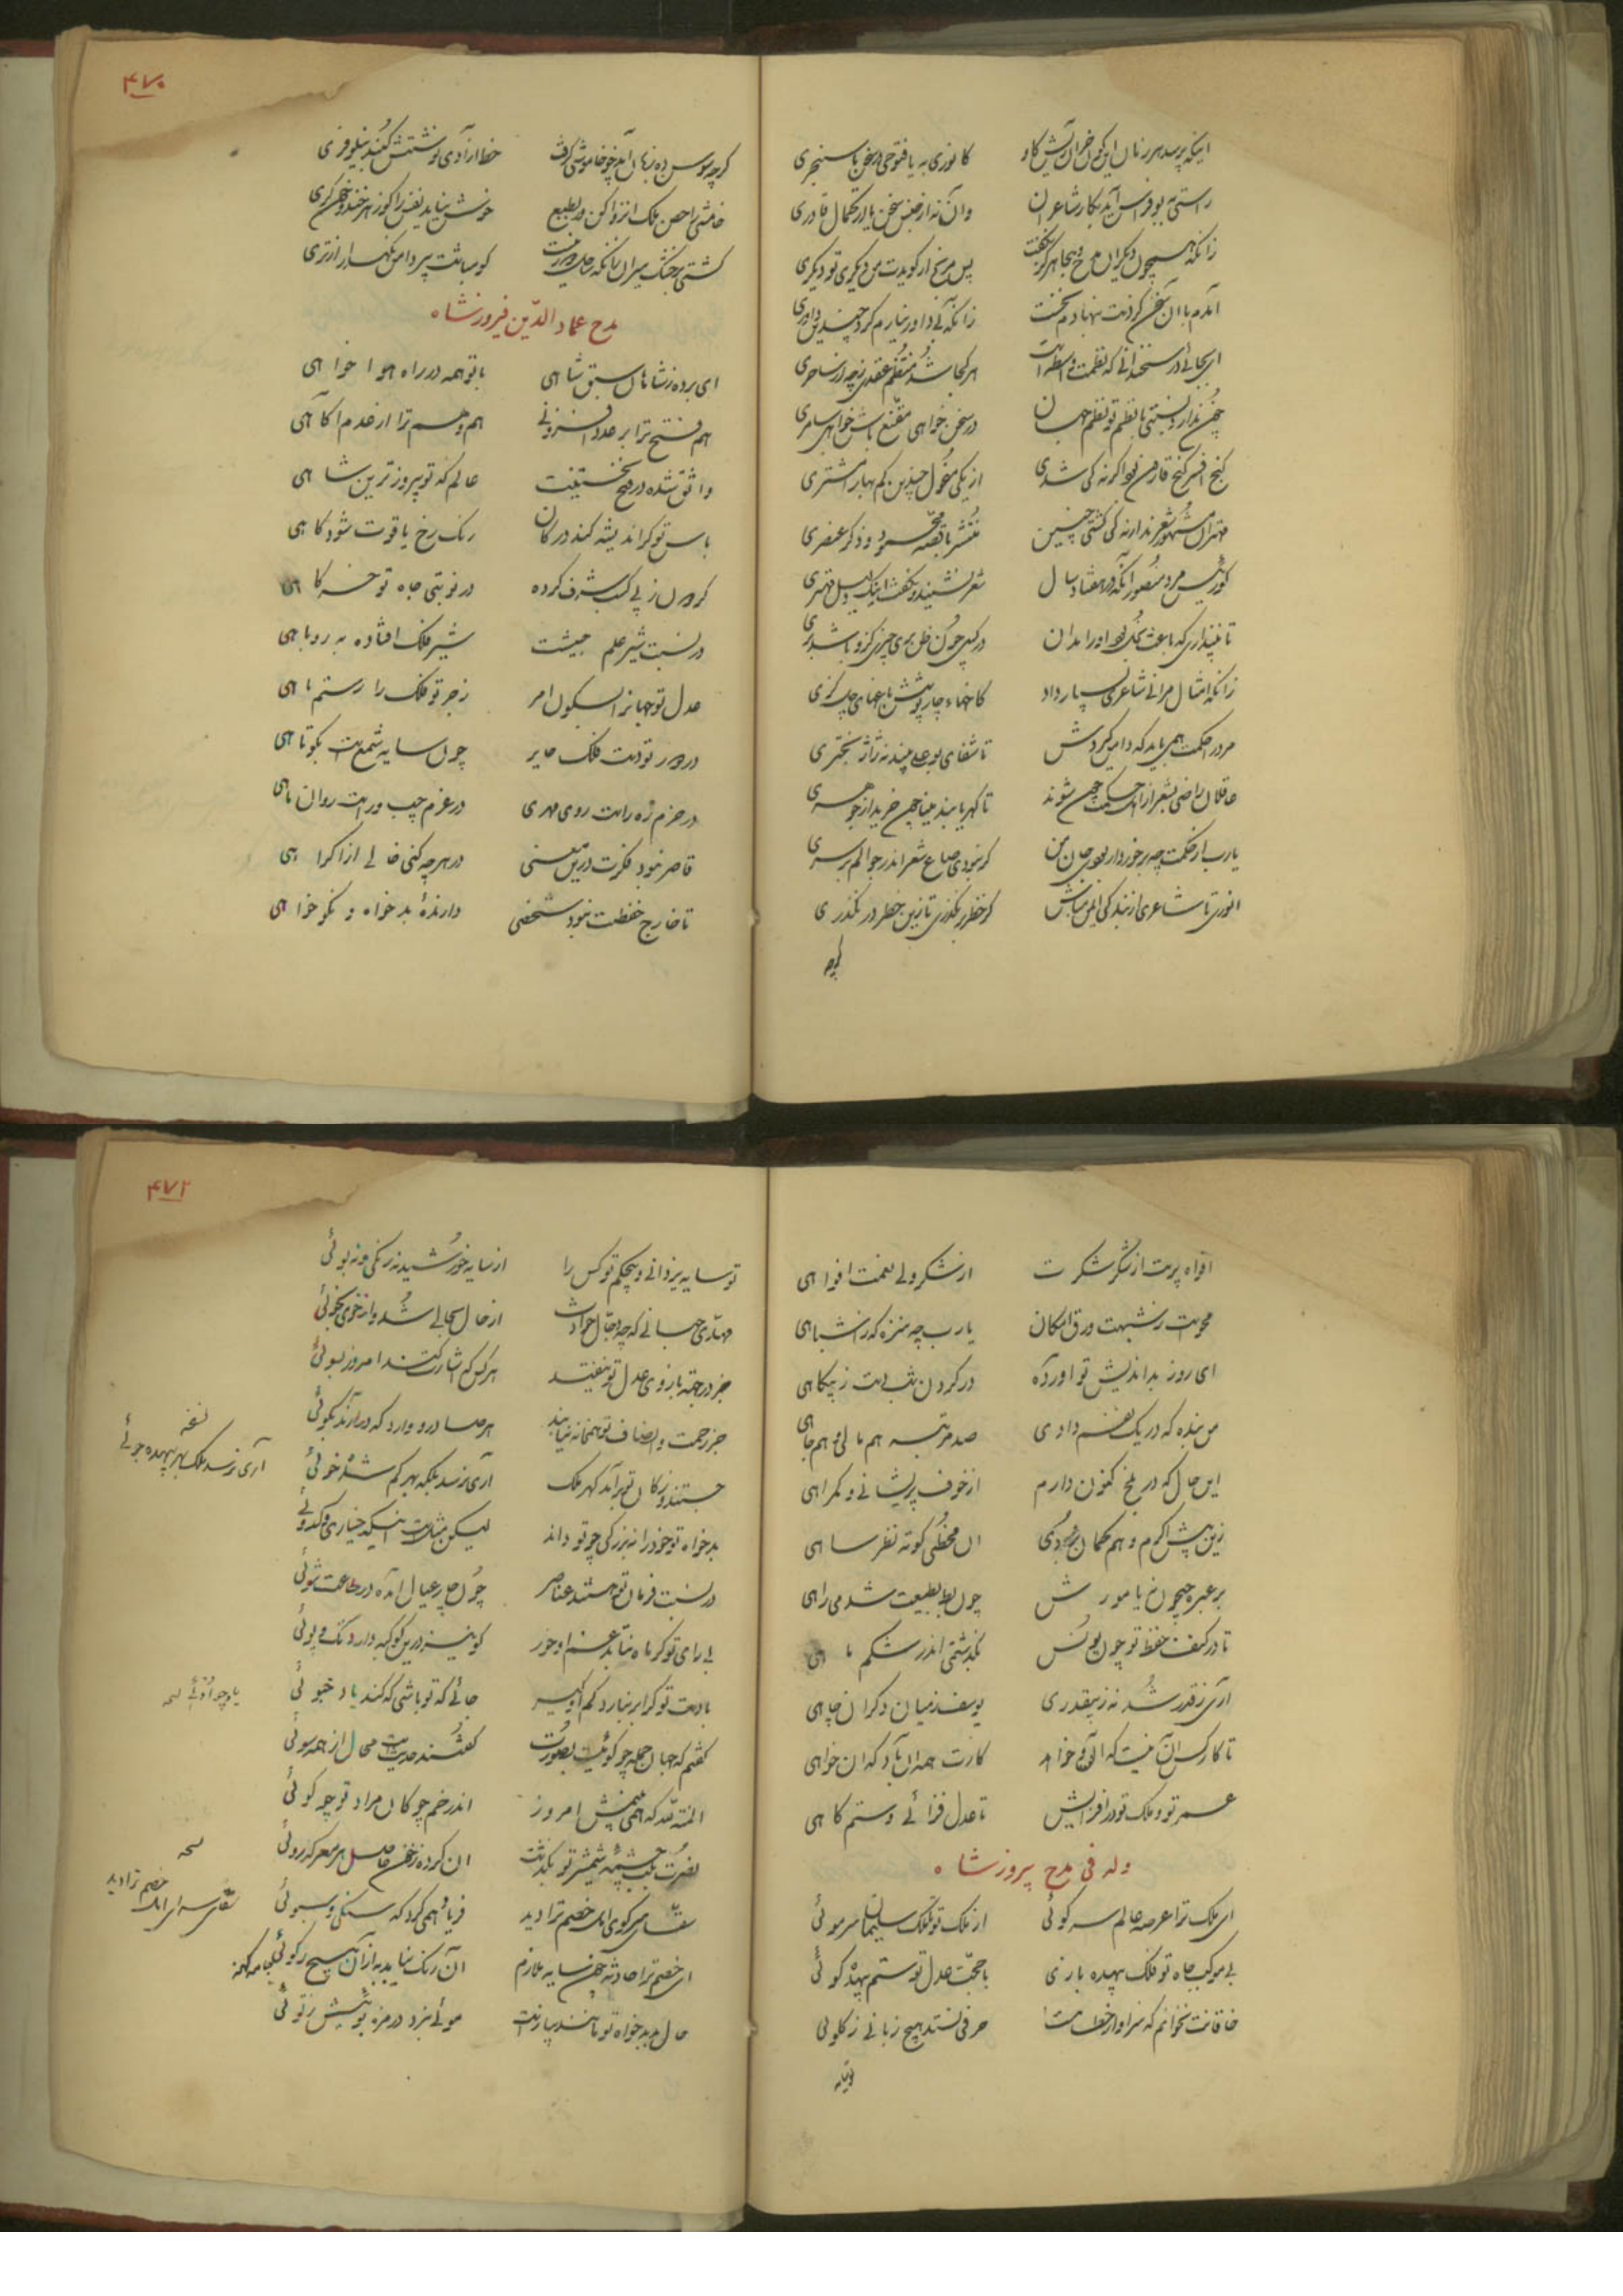 ۴۷۰
اینکه پرسد هر زمان این کون خر آن ریش گاو کانوری به یا فتوحی در سخن یا سنجری
راستی به بوفراس آمد بکار شاعران وان نه از جنس سخن یا از کمال قادری
زانکه همچون دیگران مدح و هجا هرگز نگفت پس مرنج ار گویدت من دیگری تو دیگری
آمدم با آن سخن کز دست بنهادم نخست زانکه بی داور نیارم کرد چندین داوری
ای بجائی در سخندانی که نظمت واسطه است هر کجا شد منتظم عقدی زچه از ساحری
چون ندارد نسبتی با نظم تو نظم جهان در سخن خواهی مقنع باش خواهی سامری
گنج افسر گنج قارون بود اگر نه کی شدی از یکی منحول چندین کم بها را مشتری
مهتران مشهور شعرند ارنه کی گشتی چنین منتشر با قصه محمود و ذکر عنصری
کو رئیس مرو منصور آنکه در هفتاد سال شعر نشنید و نگفت اینک دلیل مهتری
تا نپنداری که باعث بخل بود او را بدان در کسی چون ظن بری چیزی کزو باشد بری
زانکه امثال مرا بی شاعری بسیار داد کاخهاء چارپوشش باغهای چل گری
مرد را حکمت همی باید که دامن گیردش تا شفای بوعلی بیند نه ژاژ بحتری
عاقلان راضی بشعر از اهل حکمت چون شوند تا گهر یابند مینا چون خرند از جوهری
یارب از حکمت چه برخوردار بودی جان من گر نبودی صاع شعر اندر جوالم بر سری
انوری تا شاعری از بندگی ایمن مباش کز خطر درنگذری تا زین خطر درنگذری
گرچه
گرچه سوسن ده زبان آمد چو خاموشی گرفت خط آزادی نوشتش گنبد نیلوفری
خامشی را حصن ملک انزوا کن ور بطبع خوش نیاید نفس را گو زهر خند و خون گری
کشتی بر خشک میران زانکه ساحل دور نیست گو مباشت پیر دامن نگهدار از تری
مدح عماد الدین فیروزشاه
ای برده ز شاهان سبق شاهی با تو همه در راه هوا خواهی
هم فتح ترا بر عدد افزونی هم وهم ترا از عدم آگاهی
واثق شده در فتح نخستینت عالم که تو پیروزترین شاهی
باس تو گر اندیشه کند در کان رنگ رخ یاقوت شود کاهی
گردون ز پی کسب شرف کرده در نوبتی جاه تو خرگاهی
در نسبت شیر علم جیشت شیر فلک افتاده به روباهی
عدل تو جهانرا بسکون آمر زجر تو فلک را ز ستم ناهی
در دور تو دست فلک جایر چون سایه شمعست بکوتاهی
در حزم زه راست روی مهری در عزم چپ و راست روان ماهی
قاصر نبود فکرت در معنی در هرچه کنی خالی از اکراهی
تا خارج حفظت نبود شخصی دارنده بدخواه و نکو خواهی
۴۷۲
افواه پرست از شکر شکرت از شکر ولی نعمت افواهی
محوست ز شبهت ورق امکان یارب چه منزه که ز اشباهی
ای روز بداندیش تو آورده در گردن شب دست ز بیگاهی
من بنده که در یک نفسم دادی صد مرتبه هم مالی و هم جاهی
این حال که در بلخ کنون دارم از خوف پریشانی و گمراهی
زین پیش اگرم وهم گمان بردی آن مخطئی کوته نظر ساهی
بر عبره جیحون نه یا مورش چون بط بطبیعت شدمی راهی
تا در کنف حفظ تو چون یونس بگذشتمی اندر شکم ماهی
آری ز قدر شد نه ز بیقدری یوسف ز میان دگران چاهی
تا کار کس آن نیست که او خواهد کارت همه آن باد که آن خواهی
عمر تو و ملک تو در افزایش تا عدل فزائی و ستم کاهی
وله فی مدح پیروزشاه
ای ملک ترا عرصه عالم سر کوئی از ملک تو ملک سلیمان سر موئی
بی موکب جاه تو فلک بیهده تازی با حجت عدل تو ستم بیهده گوئی
خاقانت نخوانم که سزاوار خطا نیست حرفی نستد هیچ زبانی ز گلوئی
تو سایه یزدانی و بیحکم تو کس را از سایه خورشید نه رنگی و نه بوئی
مهدی جهانی که چه دجال حوادث از حال بحالی شد و از خوی بخوئی
جز در جهت بازوی عدل تو نیفتد هر کس که اشارت کند امروز بسوئی
جز رحمت و انصاف تو همخانه نیابند هر صادر و وارد که درآیند بکوئی
جستند و ز کان تو برآمد گهر ملک آری نرسد ملک بهر گم شده خوئی
نسخه
آری نرسد ملک بهر بیهده جوئی
بدخواه تو خود را به بزرگی چو تو داند لیکن مثلست اینکه خیاری و کدوئی
در نسبت فرمان تو هستند عناصر چون چار عیال آمده در طاعت شوئی
بی رای تو گر ماه نتابد غم او خور کو نیز درین کوکبه دارد تک و پوئی
با دست تو گر ابر نبارد کم او گیر جائی که تو باشی که کند یاد خبوئی
گفتم که جهان جمله چو گوئیست بصورت گفتند حدیثیست محال از همه سوئی
المنة لله که همی بینمش امروز اندر خم چوگان مراد تو چو گوئی
نصرت بلب چشمه شمشیر تو بگذشت آن کرده ز خون حاصل هر معرکه روئی
سقای سر کوی امل خصم ترا دید فریاد همی کرد که سنگی و سبوئی
ای خصم ترا حادثه چون سایه ملازم آن رنگ نیاید به از آن هیچ رکوئی
حال بد بدخواه تو مانند پیازست موئی نبرد در مزه توئیش ز توئی